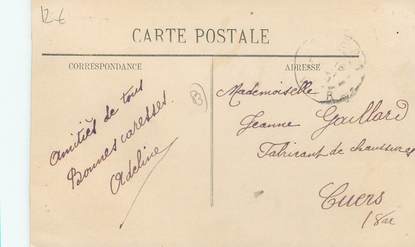 12 €
CARTE POSTALE
CORRESPONDANCE
ADRESSE
Amitiés de tous
Bonnes caresses.
Adeline
B
Mademoiselle
Jeanne Gaillard
Fabricant de chaussures
Cuers
Var